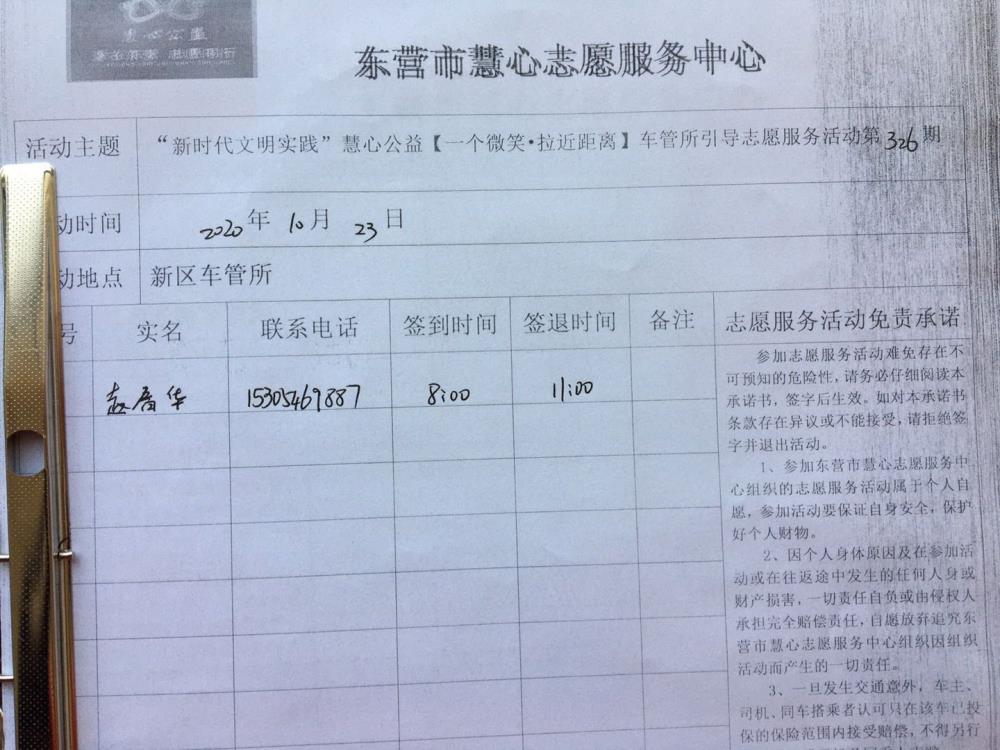 慧心公益
东营市慧心志愿服务中心
活动主题 “新时代文明实践”慧心公益【一个微笑·拉近距离】车管所引导志愿服务活动第326期
动时间 2020年 10月 23日
动地点 新区车管所
号 实名 联系电话 签到时间 签退时间 备注 志愿服务活动免责承诺
赵 华 15305469887 8:00 11:00
参加志愿服务活动难免存在不
可预知的危险性,请务必仔细阅读本
承诺书,签字后生效。如对本承诺书
条款存在异议或不能接受,请拒绝签
字并退出活动。
1、参加东营市慧心志愿服务中
心组织的志愿服务活动属于个人自
愿,参加活动要保证自身安全,保护
好个人财物。
2、因个人身体原因及在参加活
动或在往返途中发生的任何人身或
财产损害,一切责任自负或由侵权人
承担完全赔偿责任,自愿放弃追究东
营市慧心志愿服务中心组织因组织
活动而产生的一切责任。
3、一旦发生交通意外,车主、
司机、同车搭乘者认可只在该车已投
保的保险范围内接受赔偿,不得另行